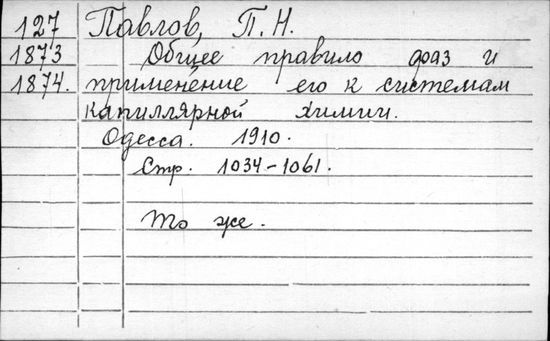 127 Павлов, П. Н.
1873 Общее правило фаз и
1874. применение его к системам
капиллярной химии.
Одесса. 1910.
Стр. 1034-1061.
То же.